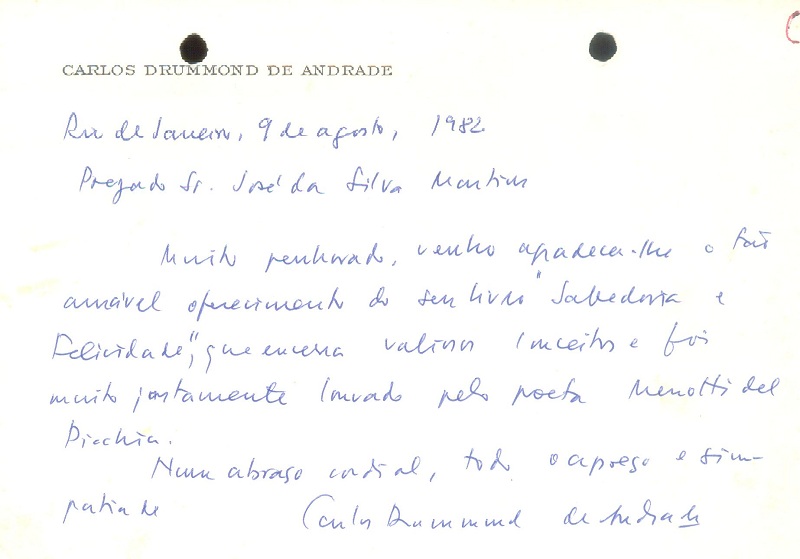 CARLOS DRUMMOND DE ANDRADE
Rio de Janeiro, 9 de agosto, 1982
Prezado Sr. José da Silva Martins
Muito penhorado, venho agradecer-lhe o tão
amável oferecimento do seu livro "Sabedoria e
Felicidade", que encerra valiosos conceitos e foi
muito justamente louvado pelo poeta Menotti del
Picchia.
Num abraço cordial, todo o apreço e sim-
patia de
Carlos Drummond de Andrade